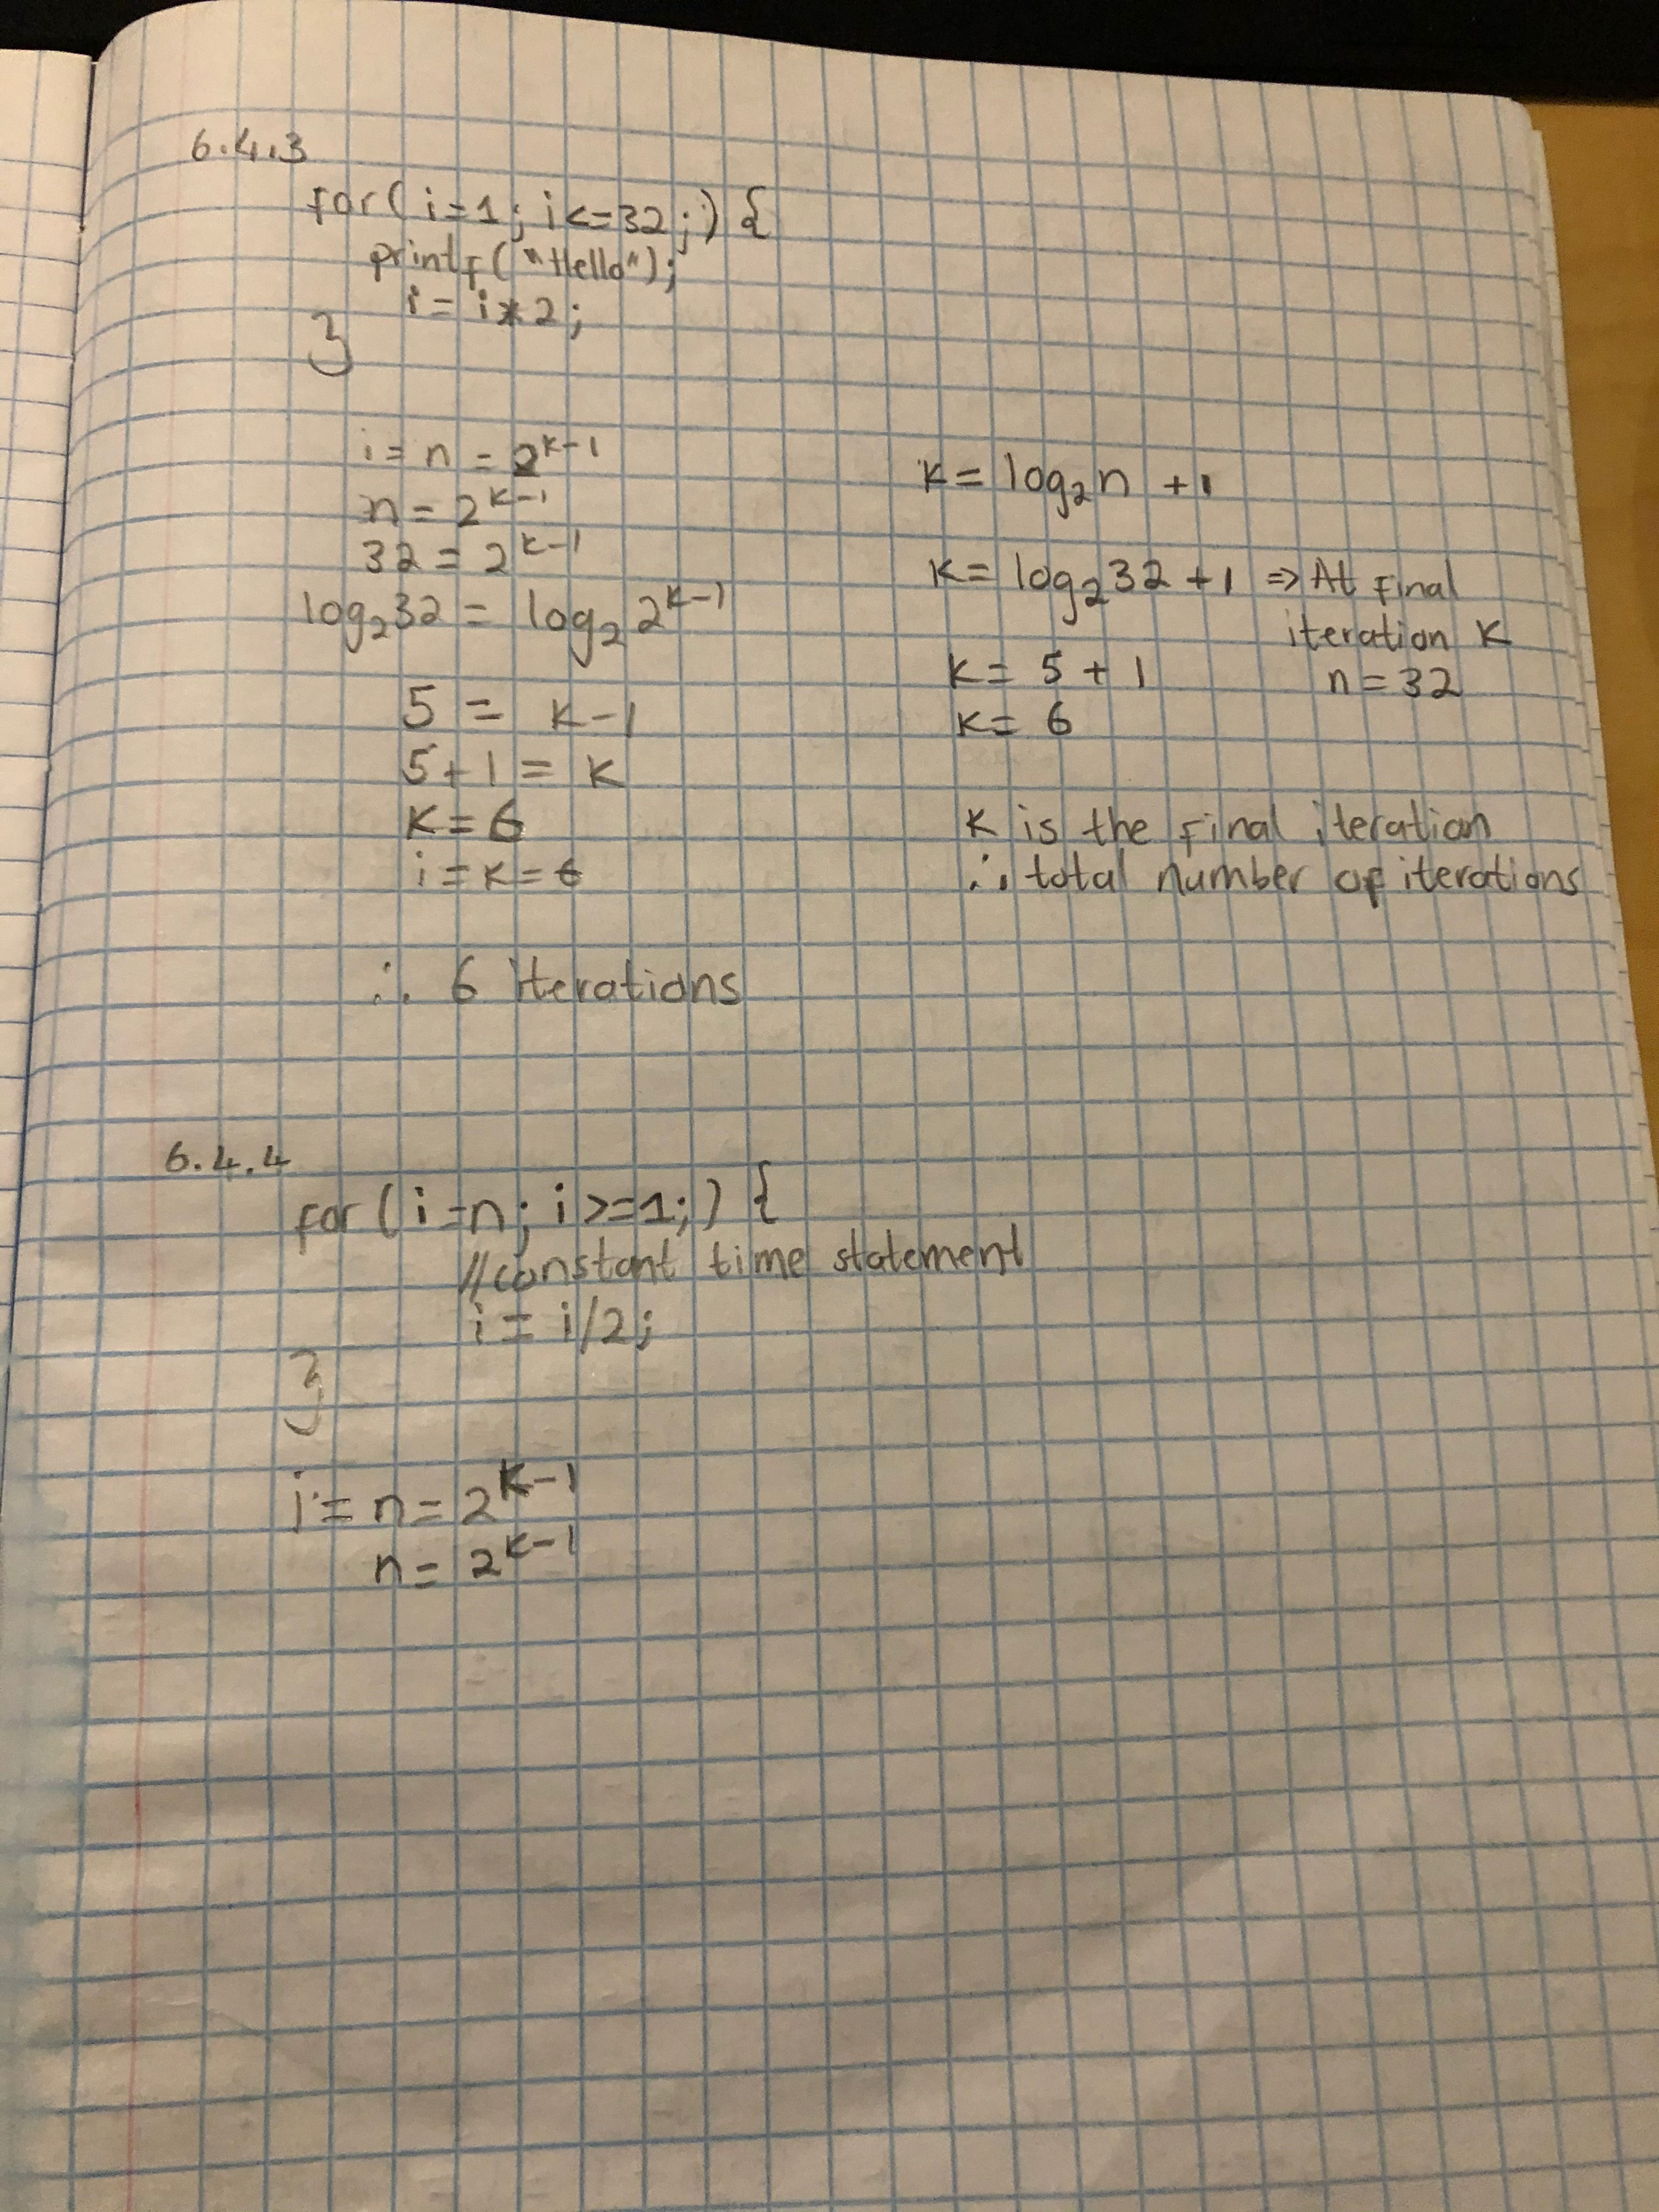 6.4.3
for( i=1; i<=32;) {
printf("Hello");
i= i*2;
}
i= n = 2^k-1
n = 2^k-1
32 = 2^k-1
log₂32 = log₂ 2^k-1
5 = k-1
5+1 = k
k=6
i=k=6
∴ 6 iterations
k= log₂n +1
k= log₂32+1 ⇒ At final
iteration k
n=32
k= 5+1
k= 6
k is the final iteration
∴ total number of iterations
6.4.4
for( i=n; i>=1;) {
//constant time statement
i= i/2;
}
i= n= 2^k-1
n= 2^k-1